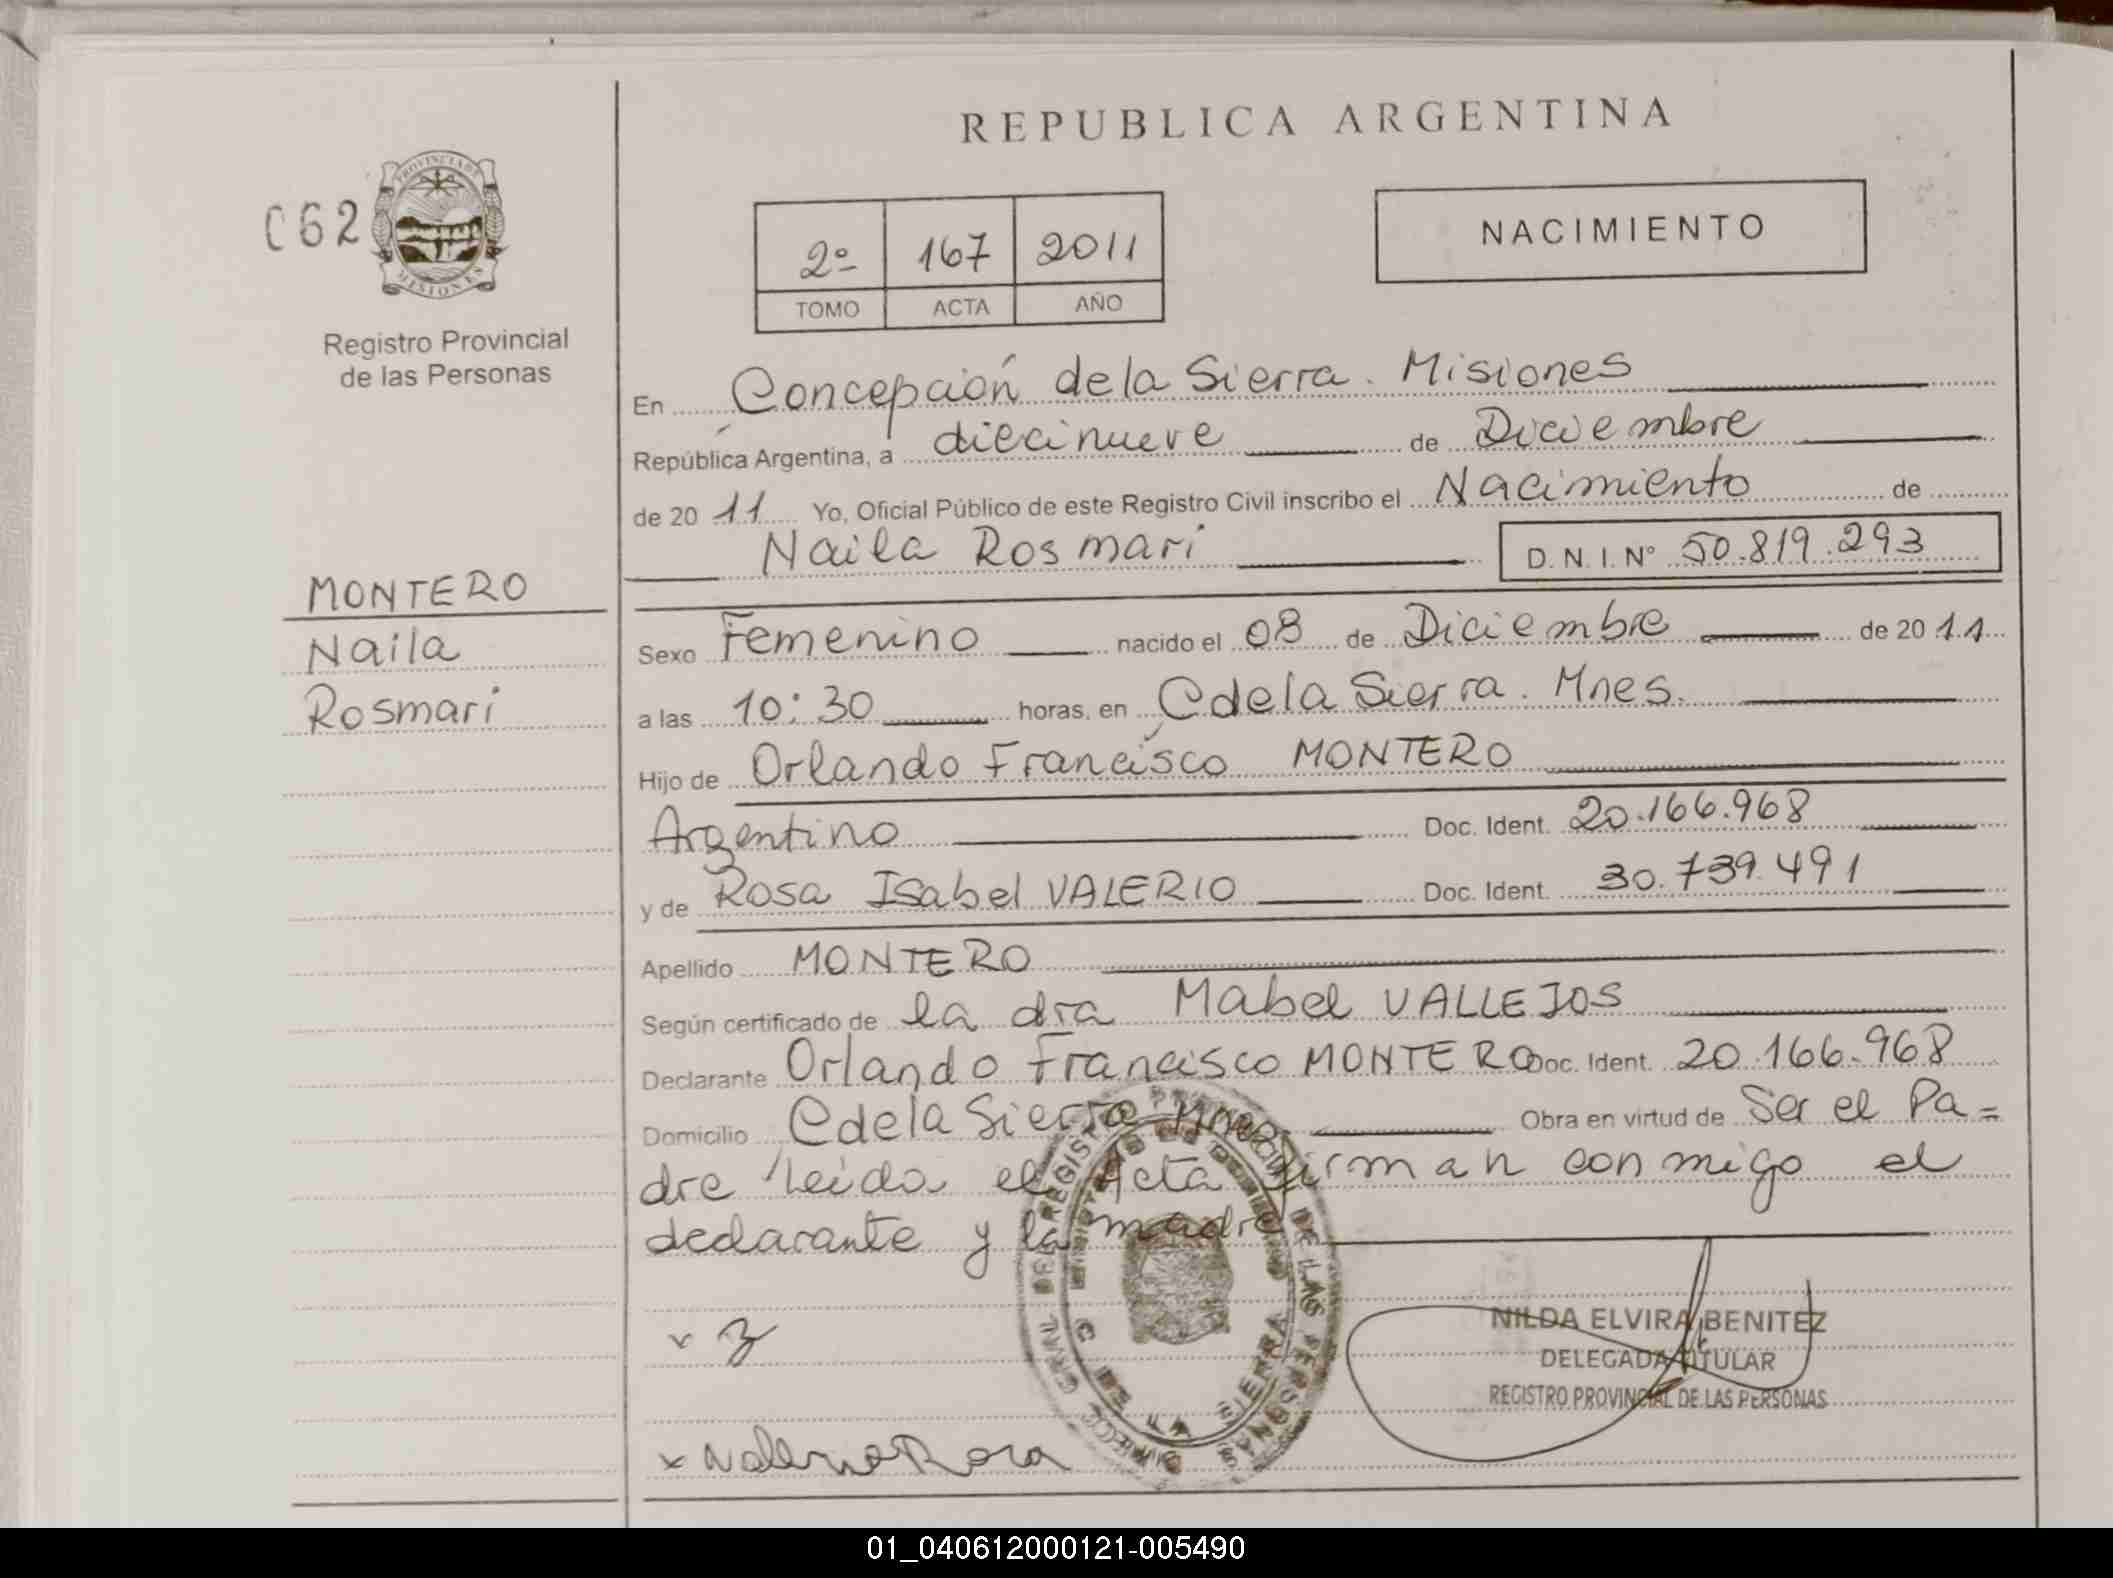 REPUBLICA ARGENTINA
C62
PROVINCIA DE
MISIONES
Registro Provincial
de las Personas
2º 167 2011
TOMO ACTA AÑO
NACIMIENTO
En Concepción de la Sierra. Misiones
República Argentina, a diecinueve de Diciembre
de 2011 Yo, Oficial Público de este Registro Civil inscribo el Nacimiento de
Naila Rosmari D.N.I. Nº 50.819.293
MONTERO
Naila
Rosmari
Sexo Femenino nacido el 08 de Diciembre de 2011
a las 10:30 horas, en C de la Sierra. Mnes.
Hijo de Orlando Francisco MONTERO
Argentino Doc. Ident. 20.166.968
y de Rosa Isabel VALERIO Doc. Ident. 30.739.491
Apellido MONTERO
Según certificado de la dra Mabel VALLEJOS
Declarante Orlando Francisco MONTERO Doc. Ident. 20.166.968
Domicilio C de la Sierra Mnes Obra en virtud de Ser el Pa=
dre leida el Acta firman conmigo el
declarante y la madre
NILDA ELVIRA BENITEZ
DELEGADA TITULAR
REGISTRO PROVINCIAL DE LAS PERSONAS
x Valerio Rosa
01_040612000121-005490